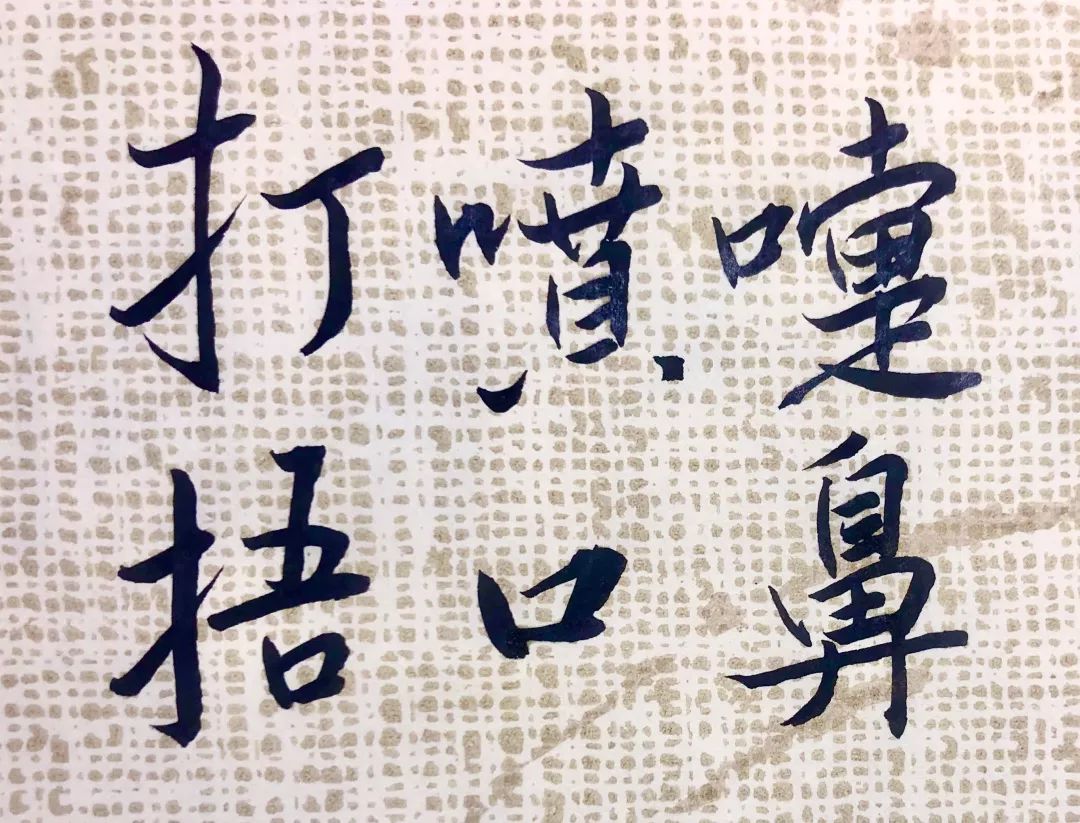 打噴嚏
捂口鼻